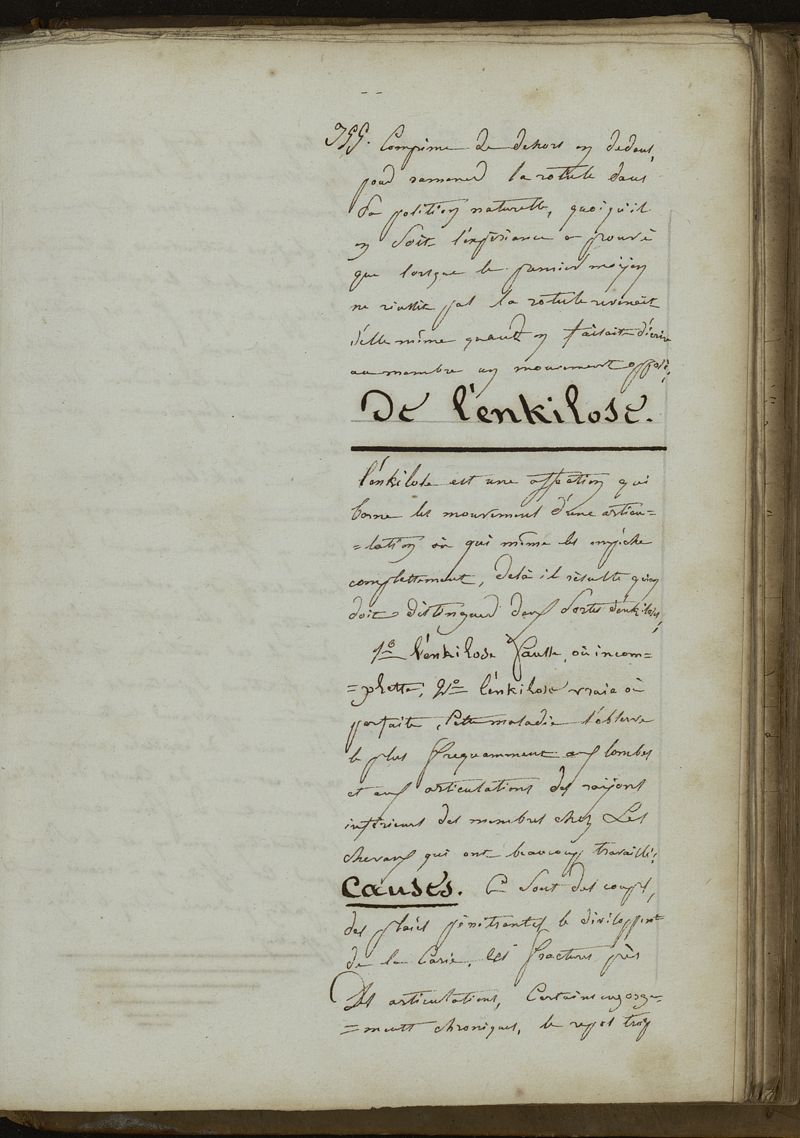 355. Comprime de dehors en dedans,
pour ramener la rotule dans
sa position naturelle, quoiqu'il
en soit l'expérience a prouvé
que lorsque le premier moÿen
ne réussit pas la rotule revenait
d'elle même quand on faisait décrire
au membre un mouvement opposé;
De l'enkilose.
l'enkilose est une affection qui
borne les mouvement d'une articu=
=lation où qui même les empêche
complettement, delà il résulte qu'on
doit distinguer deux sortes d'enkiloses;
1o l'enkilose fausse, où incom=
=plette, 2o l'enkilose vraie où
parfaite, Cette maladie s'observe
le plus frequamment aux lombes
et aux articulations des raÿons
inférieurs des membres chez Les
chevaux qui ont beaucoup travaillé;
Causes. Ce sont des coups,
des plaies pénétrantes le développent
de la Carie, les fractures près
Des articulations, Certains engorge=
=ments chroniques, le repos trop